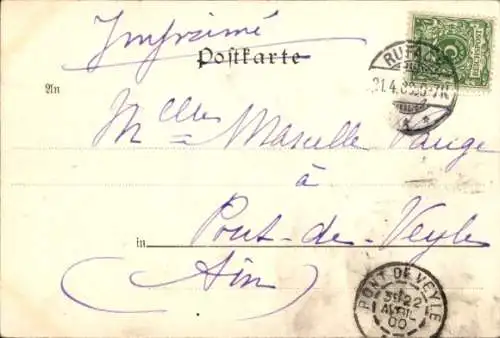 Imprimé
Postkarte
REICHSPOST
RUFACH
An
21.4.
5-7N
Mlle Marcelle
à
in Pont-de-Veyle
(Ain)
PONT DE VEYLE
22
AVRIL
00